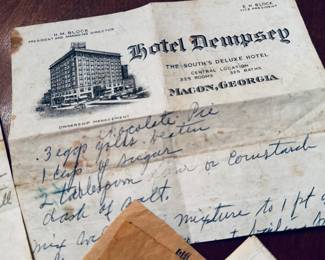 H. M. BLOCK
PRESIDENT AND MANAGING DIRECTOR
E. H. BLOCK
VICE PRESIDENT
Hotel Dempsey
THE SOUTH'S DELUXE HOTEL
CENTRAL LOCATION
225 ROOMS 225 BATHS
MACON, GEORGIA
OWNERSHIP MANAGEMENT
Chocolate Pie
3 egg yolks beaten
1 cup of sugar
2 tablespoon flour or cornstarch
dash of salt.
mix mixture to 1 pt